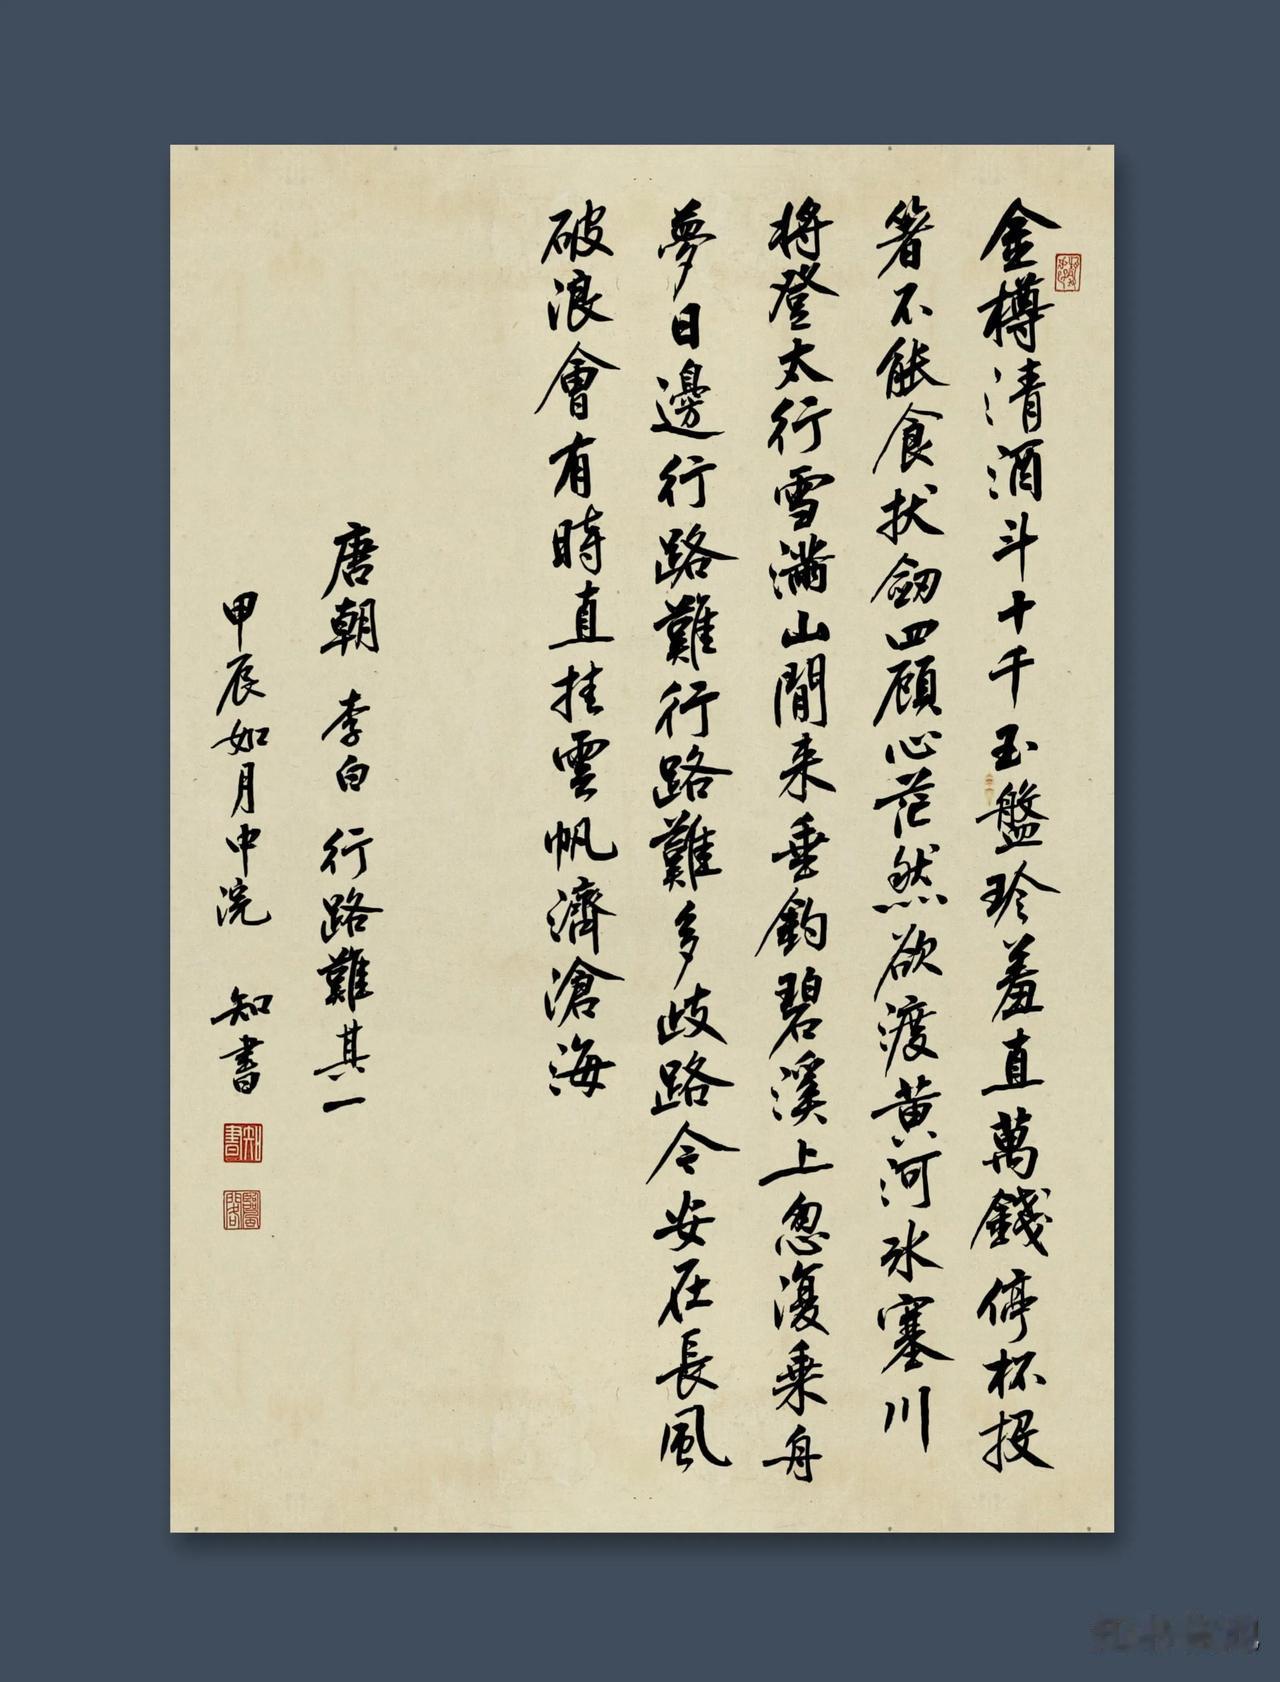 金樽清酒斗十千玉盤珍羞直萬錢停杯投
箸不能食拔劒四顧心茫然欲渡黄河冰塞川
將登太行雪滿山閒来垂釣碧溪上忽復乘舟
夢日邊行路難行路難多歧路今安在長風
破浪會有時直挂雲帆濟滄海
唐朝 李白 行路難其一
甲辰如月中浣 知書
知書